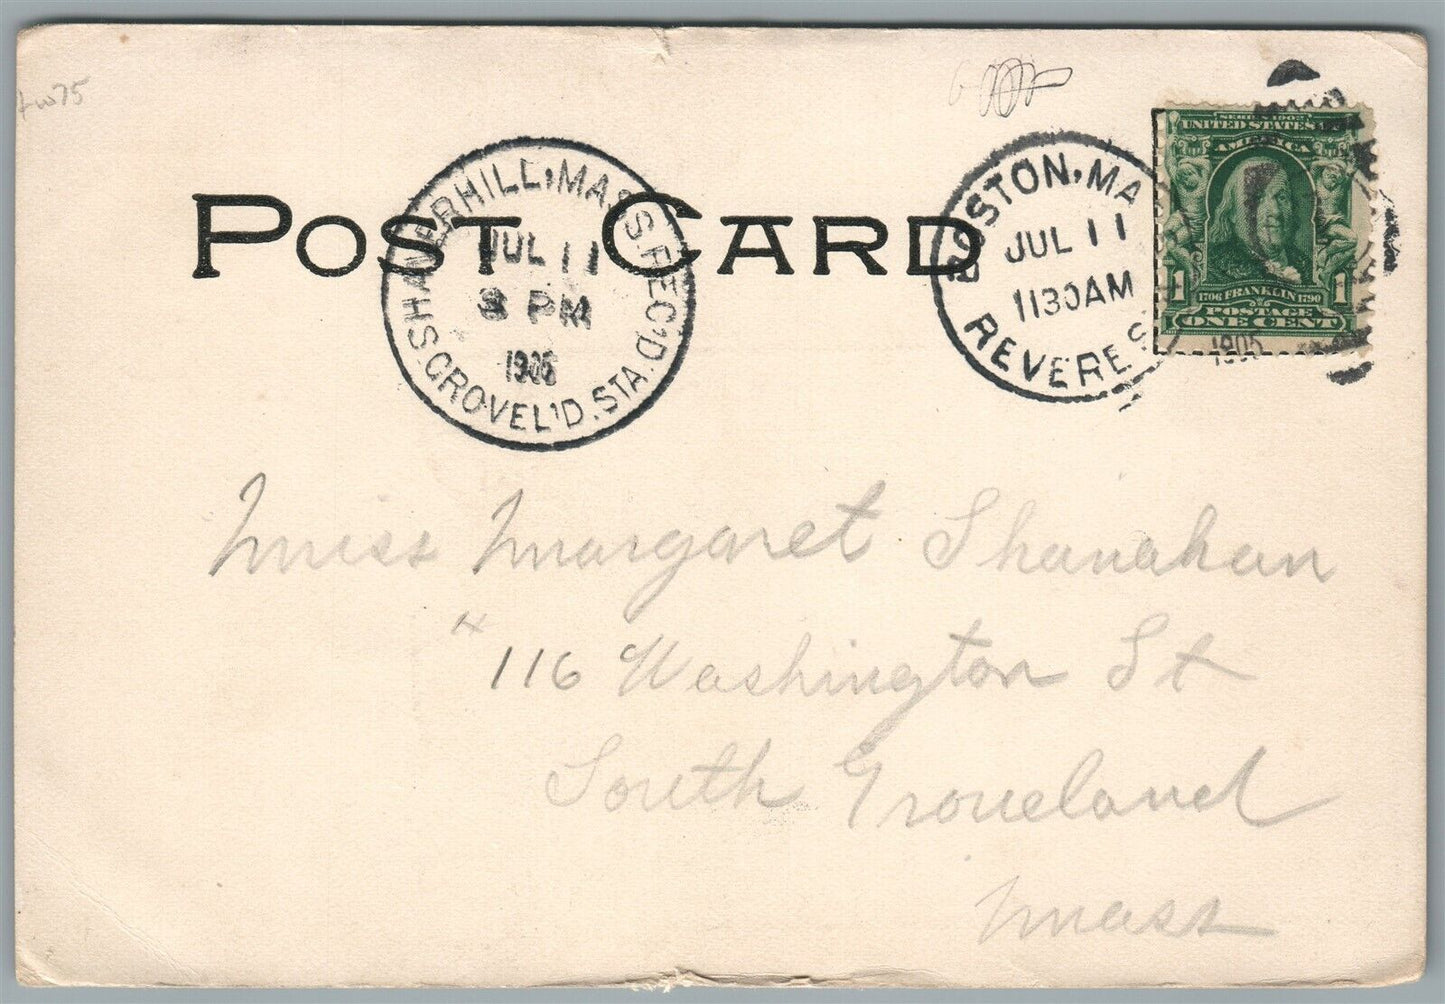 POST CARD
HAVERHILL, MASS. REC'D.
JUL 11
3 PM
1905
S. GROVEL'D. STA.
BOSTON, MA
JUL 11
1130AM
REVERE S
1905
SERIES 1902
UNITED STATES
AMERICA
1 1
1706 FRANKLIN 1790
POSTAGE
ONE CENT
Miss Margaret Shanahan
"116 Washington St
South Groveland
Mass